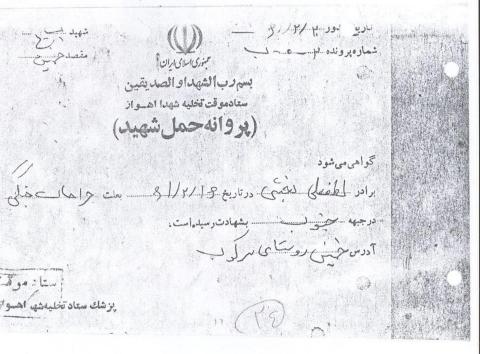 شهید
تاریخ
مقصد خمین
شماره پرونده
جمهوری اسلامی ایران
بسم رب الشهدا و الصدیقین
ستاد موقت تخلیه شهدا اهواز
(پروانه حمل شهید)
گواهی می شود
برادر لطفعلی بخشی در تاریخ ۶۱/۲/۱۶ بعلت جراحات جنگی
در جبهه جنوب بشهادت رسیده است.
آدرس خمین روستای سرکوب
ستاد موقت
پزشک ستاد تخلیه شهدا اهواز
۳۴